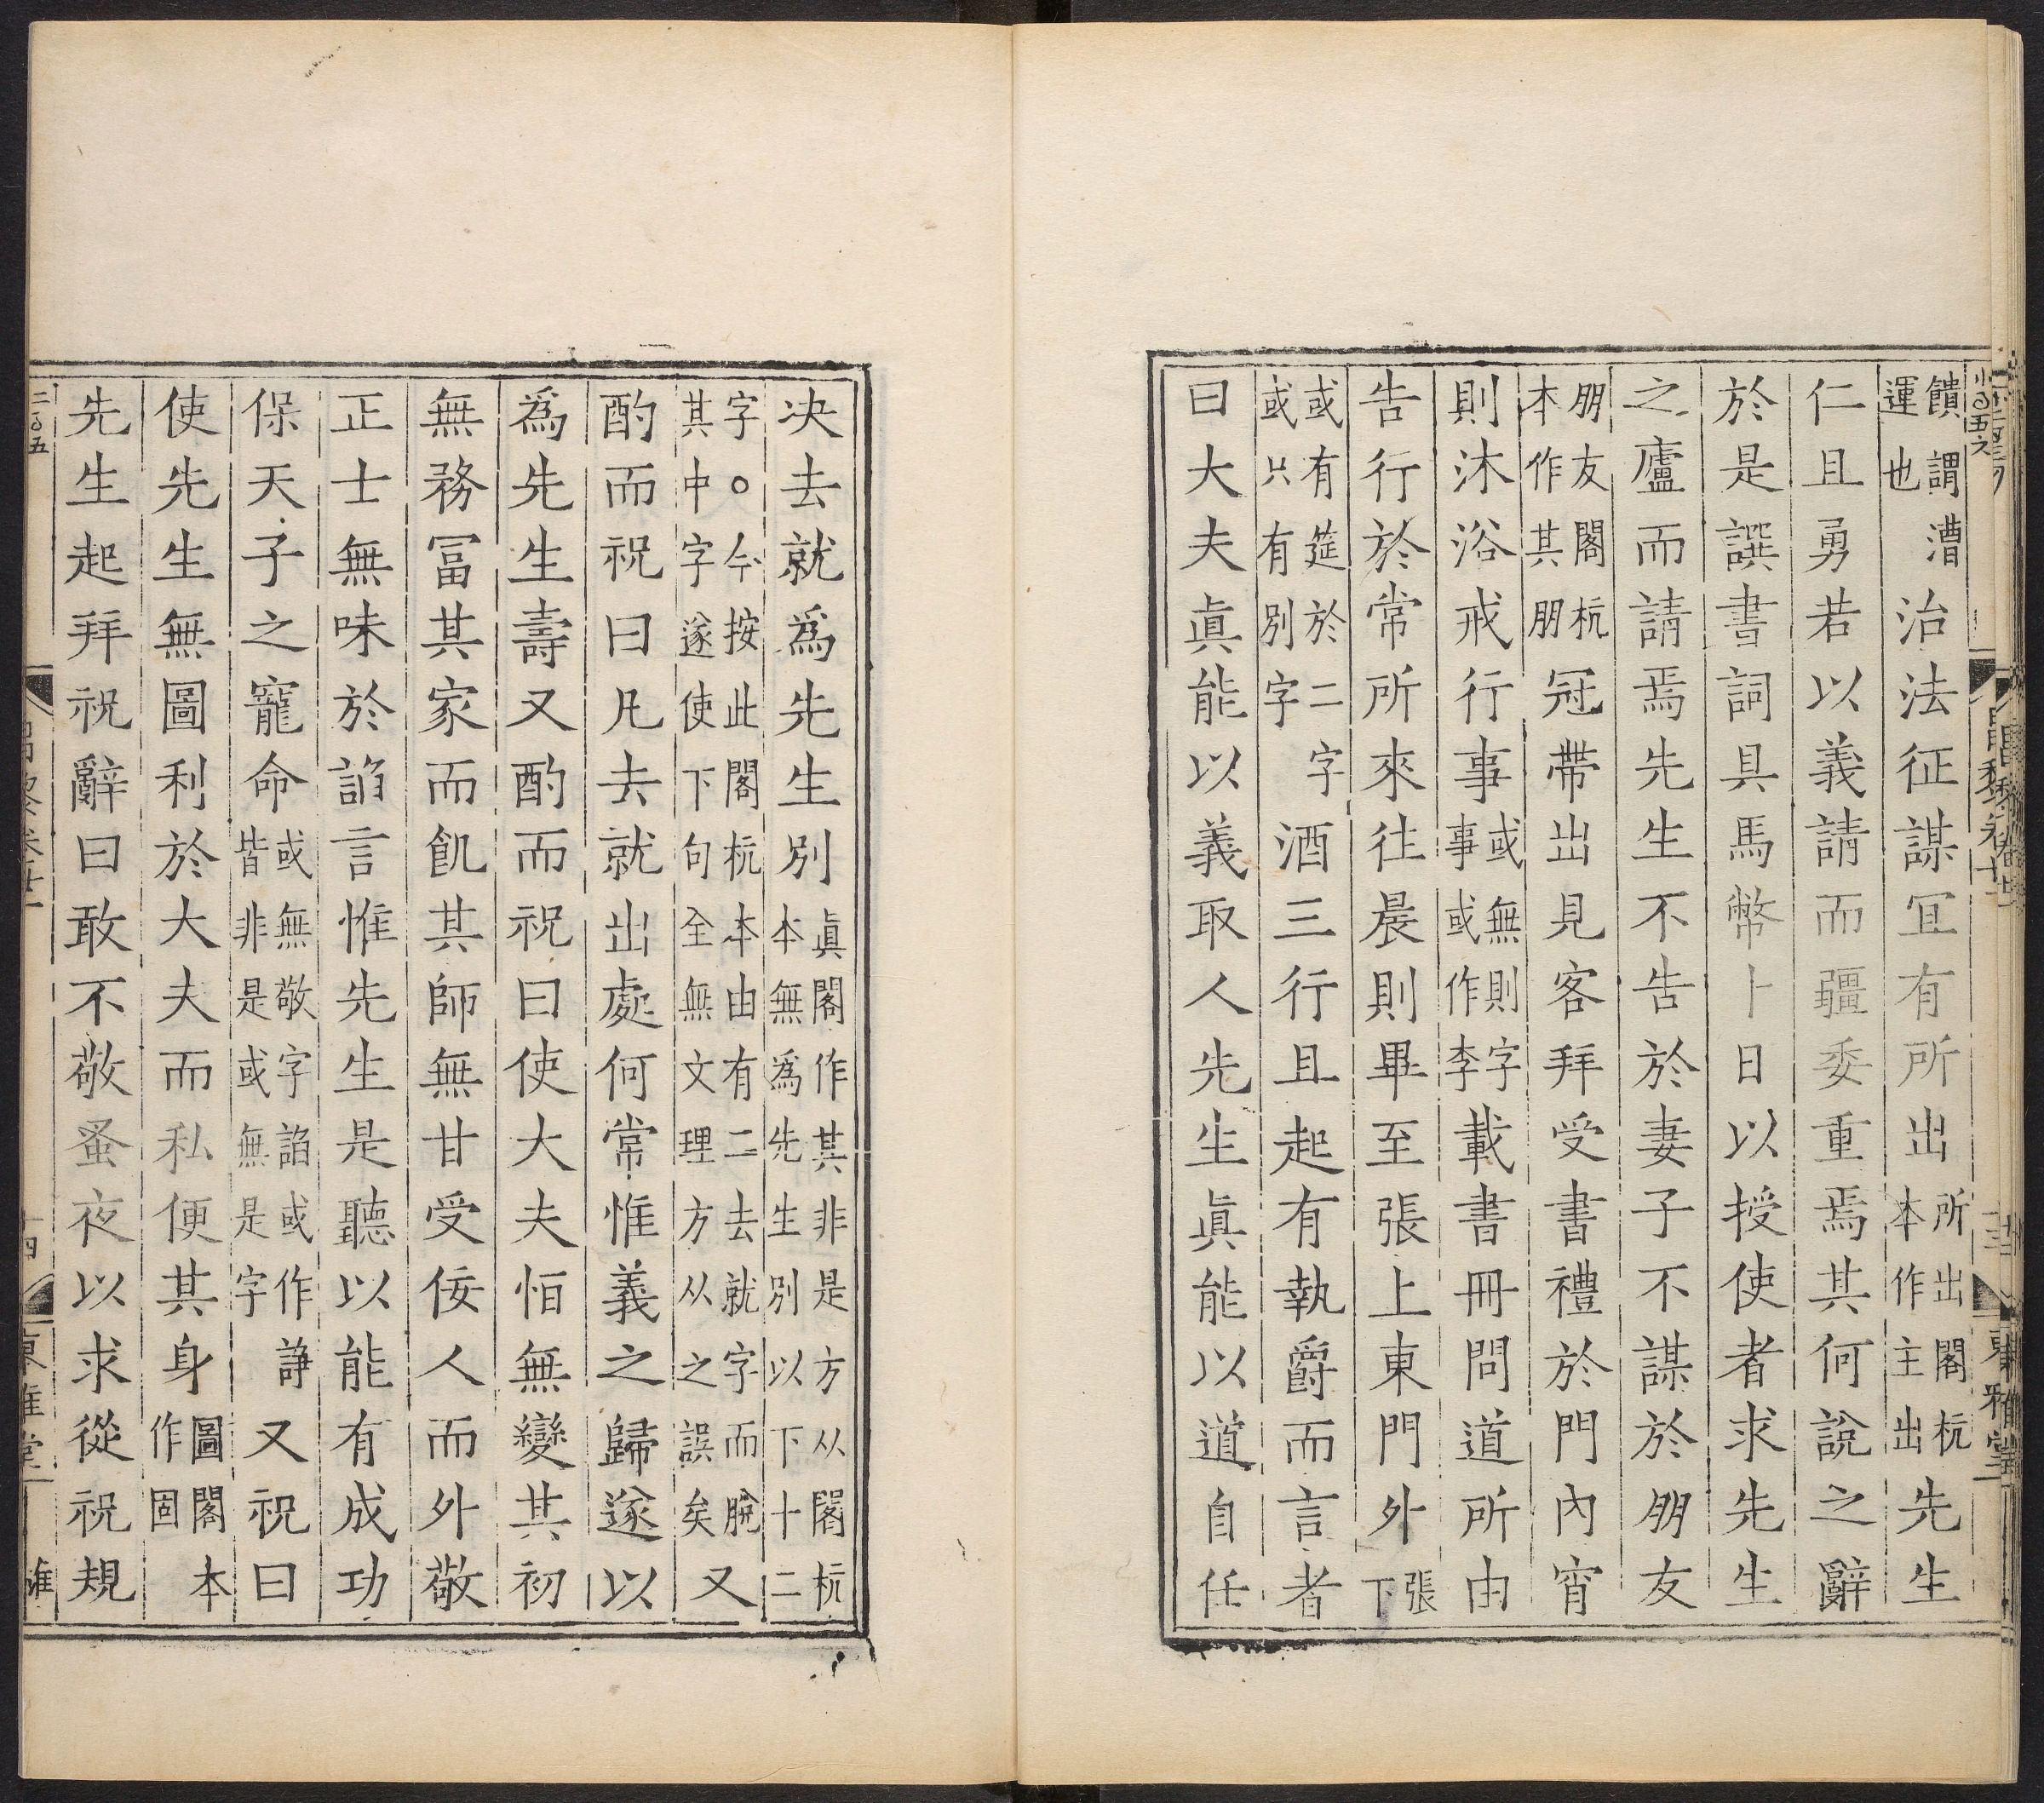 饋謂漕運也治法征謀冝有所出所出閣杭本作主出先生
仁且勇若以義請而疆委重焉其何說之辭
於是譔書詞具馬幣卜日以授使者求先生
之廬而請焉先生不告於妻子不謀於朋友
朋友閣杭本作其朋冠帶出見客拜受書禮於門內宵
則沐浴戒行事或無則字事或作李載書冊問道所由
告行於常所來往晨則畢至張上東門外張下
或有筵於二字或只有別字酒三行且起有執爵而言者
曰大夫眞能以義取人先生眞能以道自任
决去就爲先生別眞閣作其非是方从閣杭本無爲先生別以下十二
字○今按此閣杭本由有二去就字而脫其中字遂使下句全無文理方从之誤矣又
酌而祝曰凡去就出處何常惟義之歸遂以
爲先生壽又酌而祝曰使大夫恒無變其初
無務冨其家而飢其師無甘受佞人而外敬
正士無味於諂言惟先生是聽以能有成功
保天子之寵命或無敬字諂或作諍皆非是或無是字又祝曰
使先生無圖利於大夫而私便其身圖閣本作固
先生起拜祝辭曰敢不敬蚤夜以求從祝規